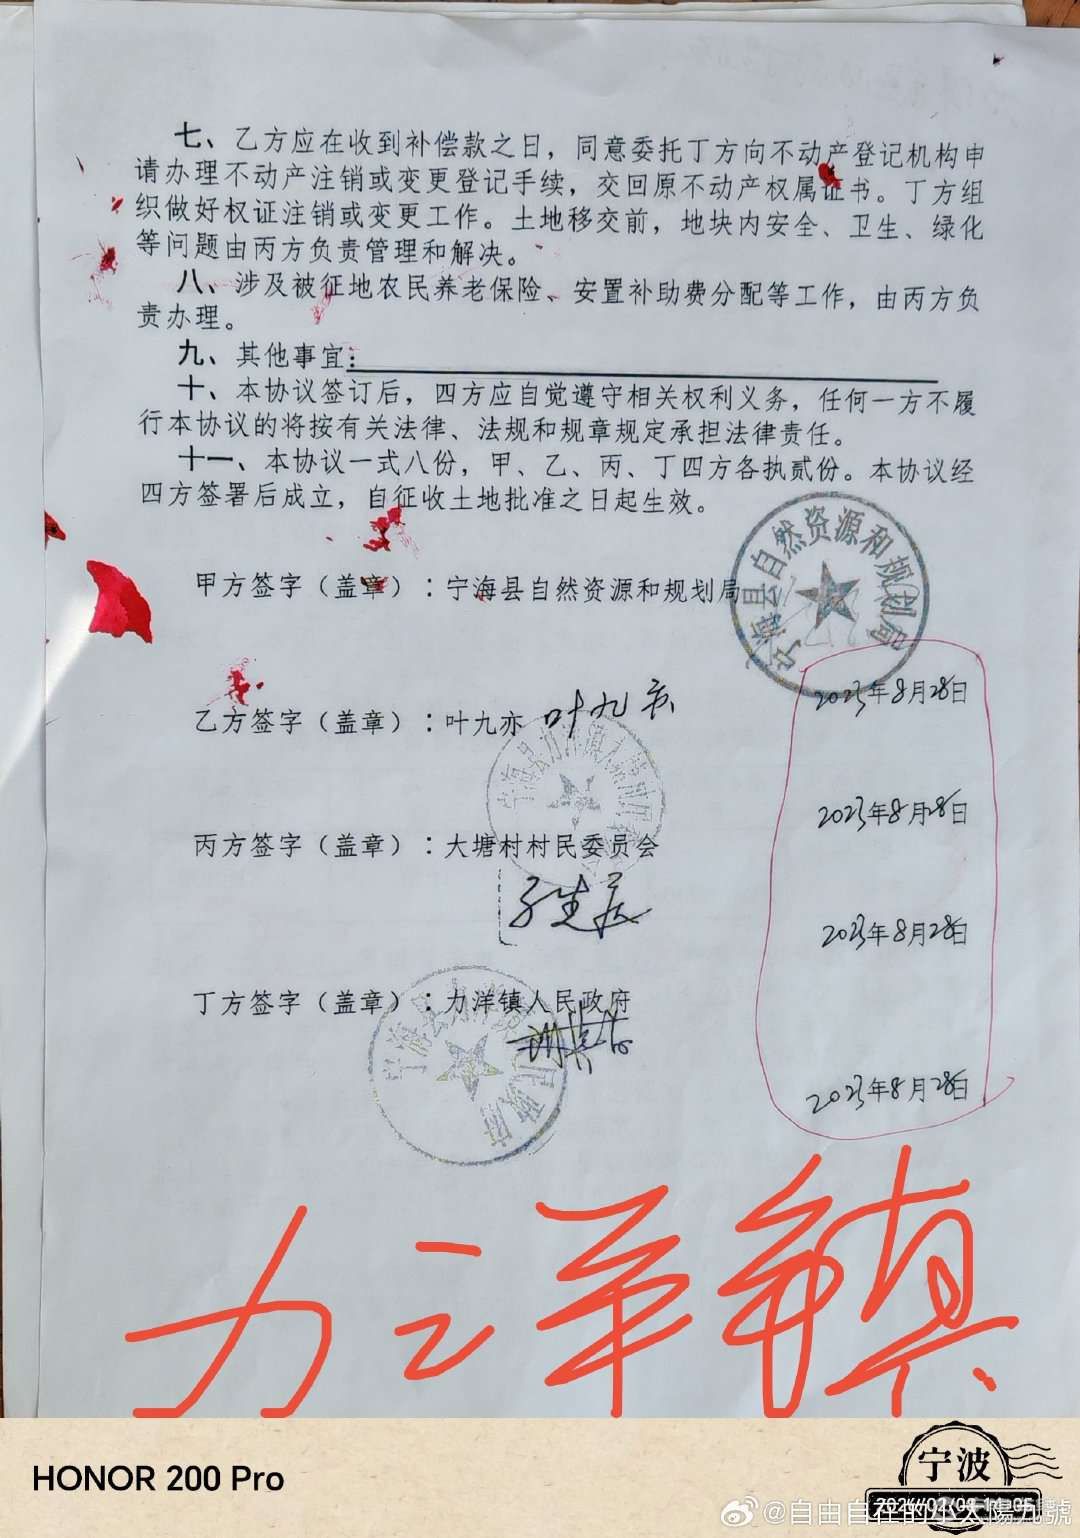 七、乙方应在收到补偿款之日，同意委托丁方向不动产登记机构申
请办理不动产注销或变更登记手续，交回原不动产权属证书。丁方组
织做好权证注销或变更工作。土地移交前，地块内安全、卫生、绿化
等问题由丙方负责管理和解决。
八、涉及被征地农民养老保险、安置补助费分配等工作，由丙方负
责办理。
九、其他事宜：
十、本协议签订后，四方应自觉遵守相关权利义务，任何一方不履
行本协议的将按有关法律、法规和规章规定承担法律责任。
十一、本协议一式八份，甲、乙、丙、丁四方各执贰份。本协议经
四方签署后成立，自征收土地批准之日起生效。
甲方签字（盖章）：宁海县自然资源和规划局
宁海县自然资源和规划局
2023年8月28日
乙方签字（盖章）：叶九亦 叶九亦
2023年8月28日
丙方签字（盖章）：大塘村村民委员会
2023年8月28日
丁方签字（盖章）：力洋镇人民政府
2023年8月28日
力洋镇
HONOR 200 Pro
宁波
@自由自在的小太陽九號